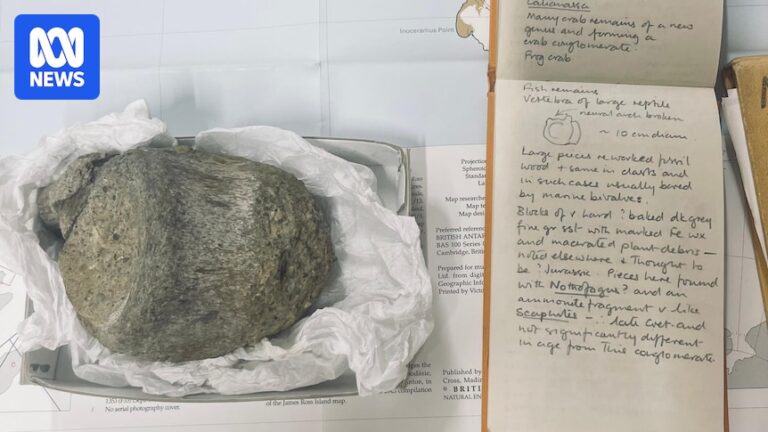 ABC NEWS
Inoceramus Point
Callianassa
Many crab remains of a new
genus and forming a
crab conglomerate.
Frog crab
Fish remains
Vertebra of large reptile
neural arch broken
~ 10 cm diam
Large pieces reworked fossil
wood + same in clasts and
in such cases usually bored
by marine bivalves.
Blocks of v hard ? baked dk grey
fine gr sst with marked Fe wx
and macerated plant debris –
noted elsewhere & thought to
be ? Jurassic. Pieces here found
with Nothofagus? and an
ammonite fragment v like
Scaphites – ∴ late Cret and
not significantly different
in age from this conglomerate.
Projection
Standard
Map researche
Map te
Map des
Preferred reference
BRITISH ANTAR
BAS 100 Series
Cambridge, British
Prepared for
Ltd. from digit
Geographic Infor
Printed by Victor
Published by
Cross, Madin
© BRIT
NATURAL EN
compilation
of the James Ross Island map.
No aerial photography cover.